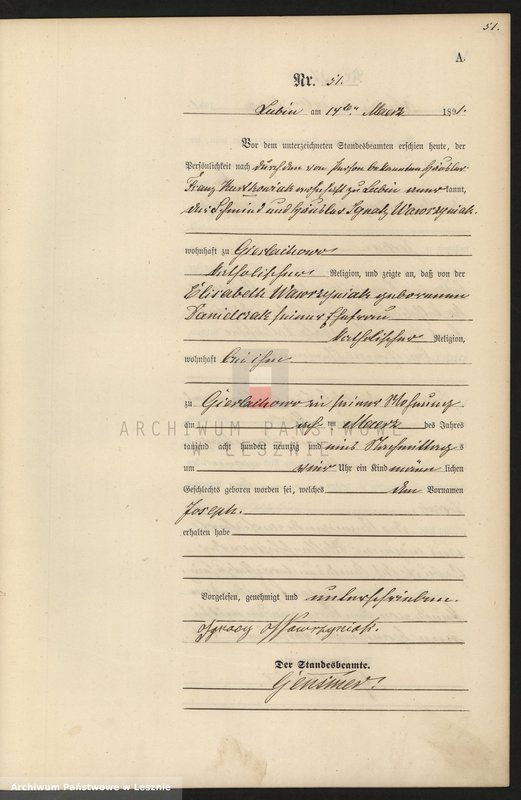 51.
A.
Nr. 51.
Lubin am 14ten Maerz 1891.
Vor dem unterzeichneten Standesbeamten erschien heute, der
Persönlichkeit nach durch den von Person bekannten Häusler
Franz wohnhaft zu Lubin anerkannt,
der Schmied und Häusler Ignatz Wawrzyniak.
wohnhaft zu Gierlachowo
katholischer Religion, und zeigte an, daß von der
Elisabeth Wawrzyniak geborenen
Danielczak seiner Ehefrau
katholischer Religion,
wohnhaft bei ihm
zu Gierlachowo in seiner Wohnung
am ten Maerz des Jahres
tausend acht hundert neunzig und eins Nachmittag s
um vier Uhr ein Kind männ lichen
Geschlechts geboren worden sei, welches den Vornamen
Joseph.
erhalten habe
Vorgelesen, genehmigt und unterschrieben.
Ignacy Wawrzyniak.
Der Standesbeamte.
Gensmer.
ARCHIWUM PAŃSTWOWE
W LESZNIE
Archiwum Państwowe w Lesznie